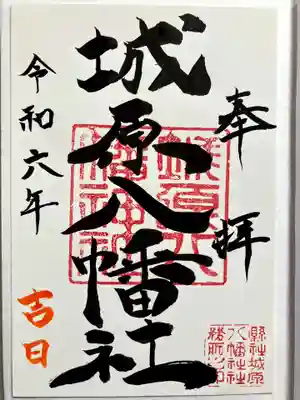 奉拝
城原八幡社
令和六年
吉日
縣社城原
八幡社社
務所之印